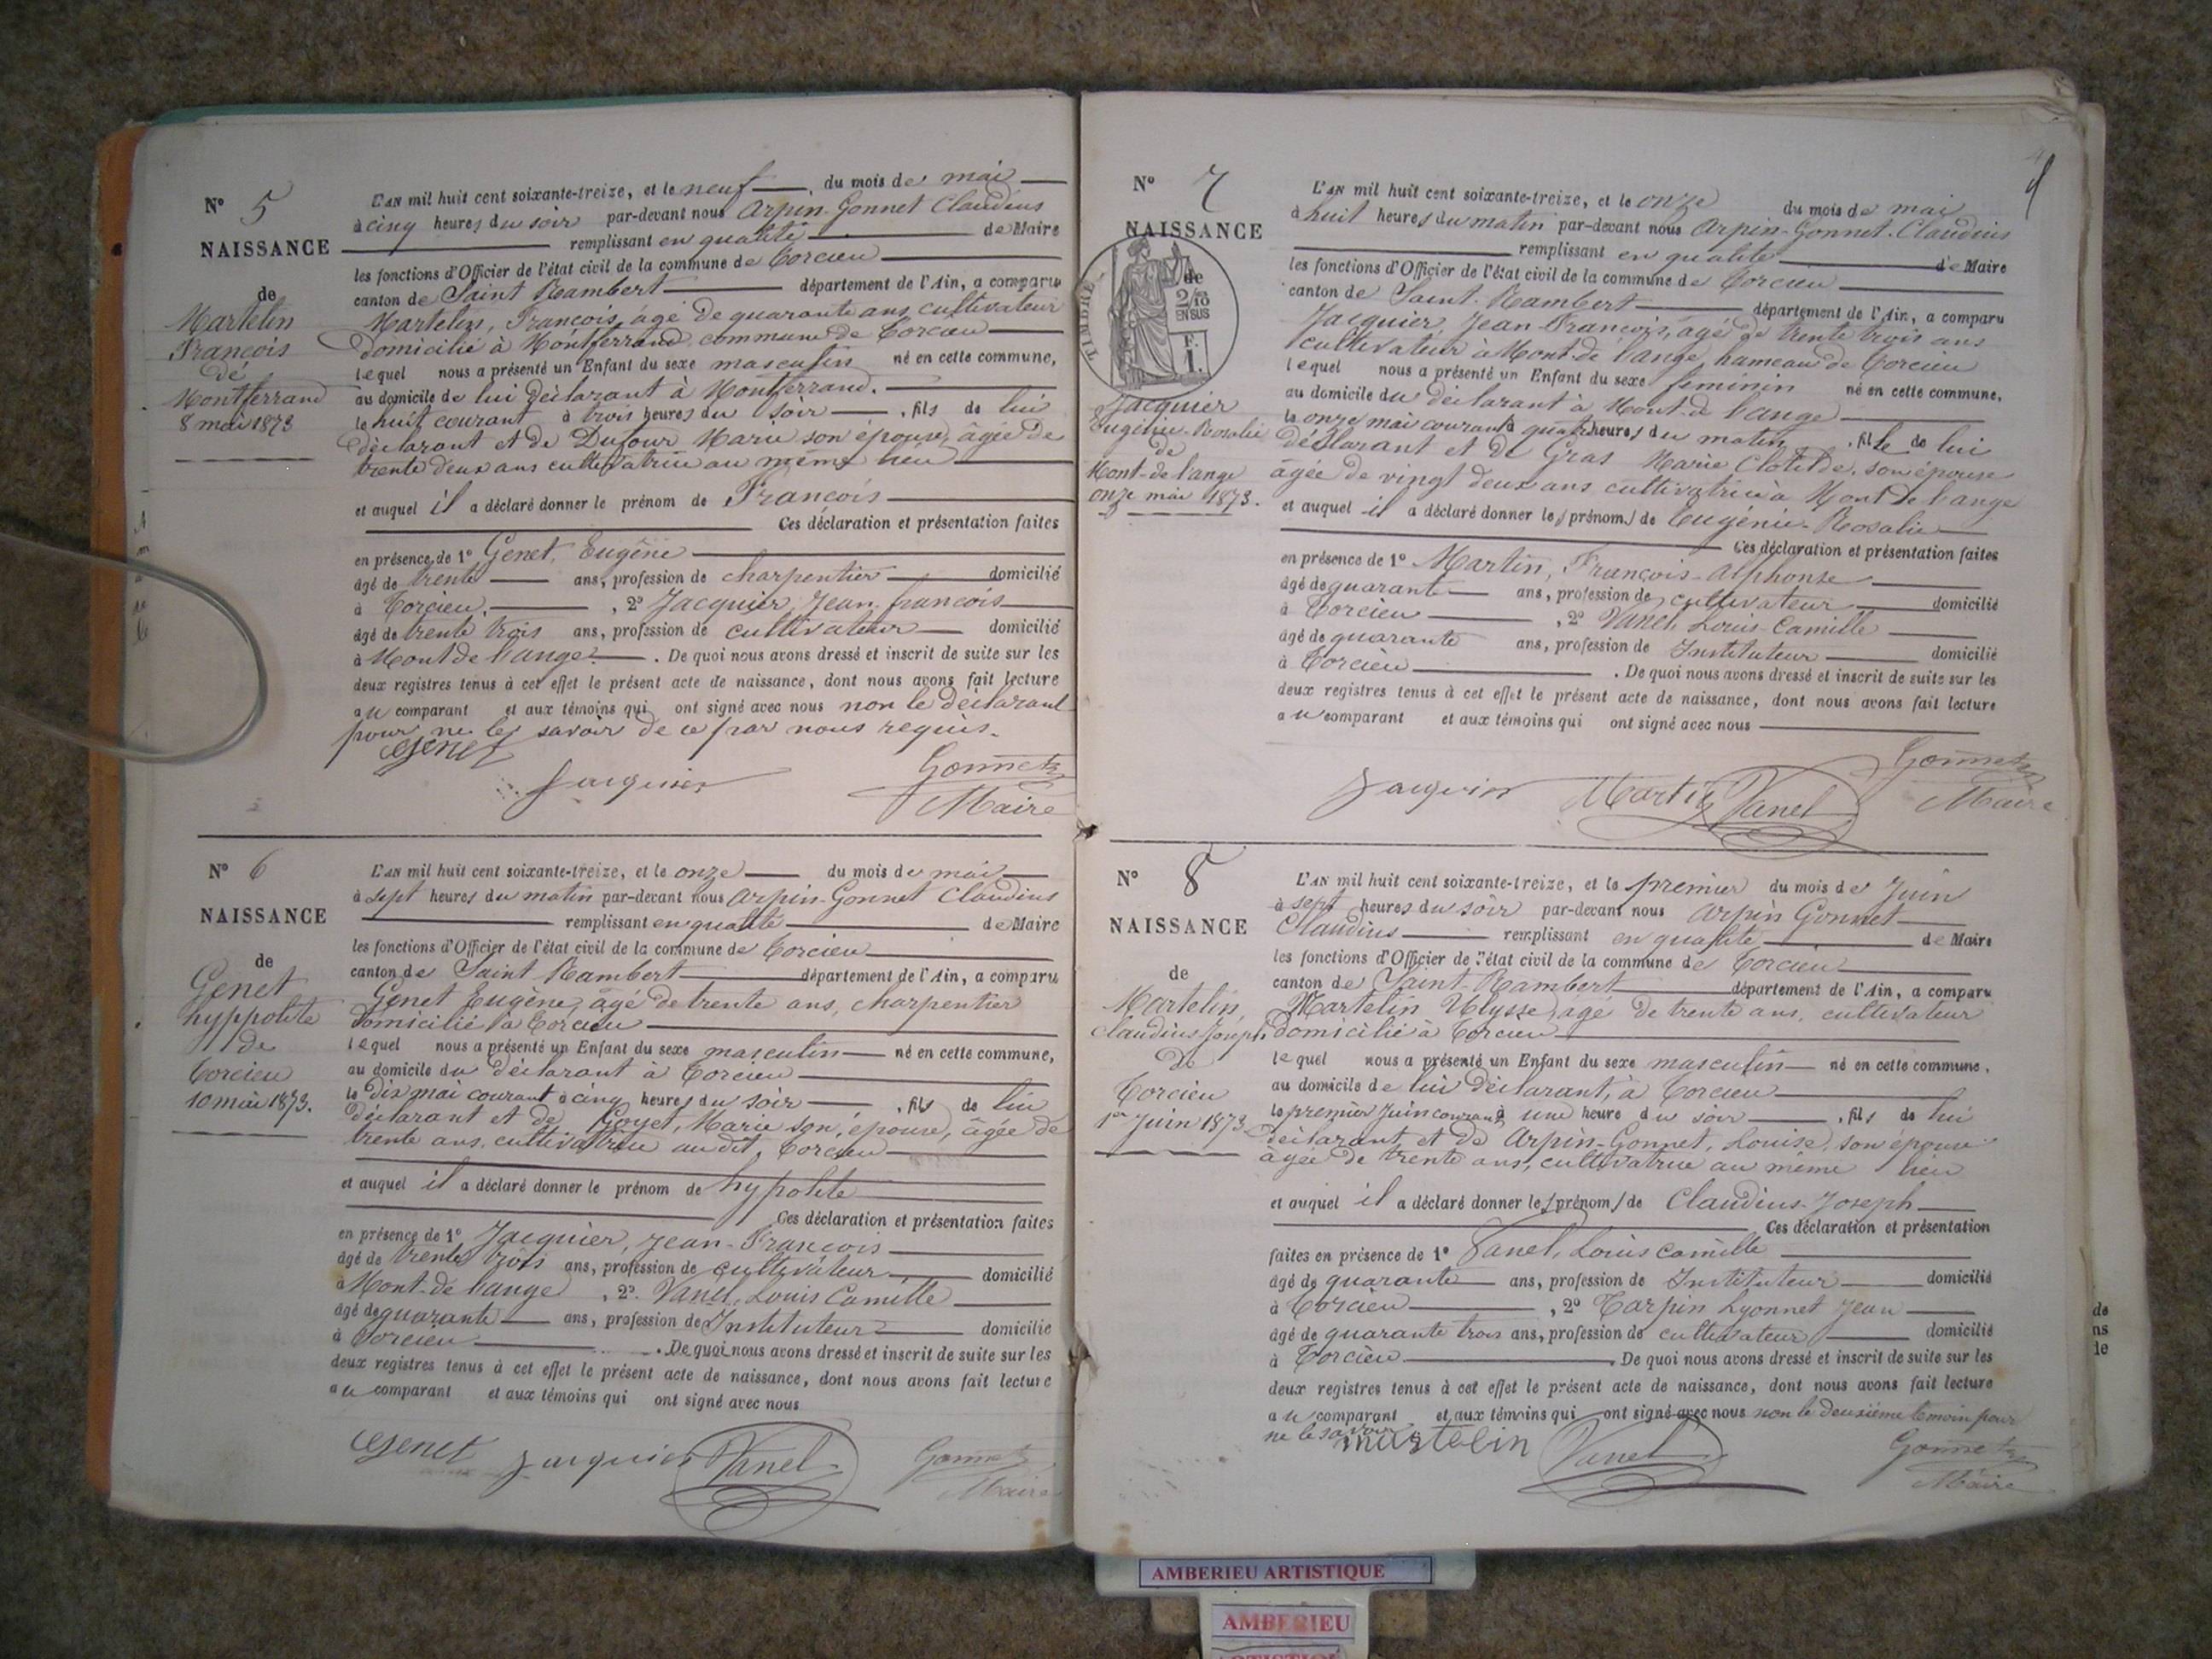 N° 5
NAISSANCE
de
Martelin
François
de
Montferrand
8 mai 1873
L'AN mil huit cent soixante-treize, et le neuf, du mois de mai
à cinq heures du soir par-devant nous Arpin-Gonnet Claudius
remplissant en qualité de Maire
les fonctions d'Officier de l'état civil de la commune de Torcieu
canton de Saint Rambert département de l'Ain, a comparu
Martelin, François, âgé de quarante ans, cultivateur
domicilié à Montferrand, commune de Torcieu
lequel nous a présenté un Enfant du sexe masculin né en cette commune,
au domicile de lui déclarant à Montferrand.
le huit courant à trois heures du soir, fils de lui
déclarant et de Dufour Marie son épouse, âgée de
trente deux ans cultivatrice au même lieu
et auquel il a déclaré donner le prénom de François
Ces déclaration et présentation faites
en présence de 1° Genet, Eugène
âgé de trente ans, profession de charpentier domicilié
à Torcieu, 2° Jacquier, Jean-françois
âgé de trente trois ans, profession de cultivateur domicilié
à Mont de l'ange. De quoi nous avons dressé et inscrit de suite sur les
deux registres tenus à cet effet le présent acte de naissance, dont nous avons fait lecture
au comparant et aux témoins qui ont signé avec nous non le déclarant
pour ne le savoir de ce par nous requis.
Genet
Jacquier
Gonnet
Maire
N° 6
NAISSANCE
de
Genet
hyppolite
de
Torcieu
10 mai 1873.
L'AN mil huit cent soixante-treize, et le onze du mois de mai
à sept heures du matin par-devant nous Arpin-Gonnet Claudius
remplissant en qualité de Maire
les fonctions d'Officier de l'état civil de la commune de Torcieu
canton de Saint Rambert département de l'Ain, a comparu
Genet Eugène, âgé de trente ans, charpentier
domicilié à Torcieu
lequel nous a présenté un Enfant du sexe masculin né en cette commune,
au domicile du déclarant à Torcieu
le dix mai courant à cinq heures du soir, fils de lui
déclarant et de Goyet, Marie son épouse, âgée de
trente ans, cultivatrice au dit Torcieu
et auquel il a déclaré donner le prénom de hypolite
Ces déclaration et présentation faites
en présence de 1° Jacquier, Jean-François
âgé de trente trois ans, profession de cultivateur domicilié
à Mont-de l'ange, 2° Vanel, Louis Camille
âgé de quarante ans, profession de Instituteur domicilié
à Torcieu. De quoi nous avons dressé et inscrit de suite sur les
deux registres tenus à cet effet le présent acte de naissance, dont nous avons fait lecture
au comparant et aux témoins qui ont signé avec nous
Genet Jacquier Vanel Gonnet
Maire
N° 7
NAISSANCE
de
TIMBRE
2/10
EN SUS
F.
1.
Jacquier
Eugénie-Rosalie
de
Mont-de l'ange
onze mai 1873.
L'AN mil huit cent soixante-treize, et le onze du mois de mai
à huit heures du matin par-devant nous Arpin-Gonnet-Claudius
remplissant en qualité de Maire
les fonctions d'Officier de l'état civil de la commune de Torcieu
canton de Saint-Rambert département de l'Ain, a comparu
Jacquier, Jean-François, âgé de trente trois ans
cultivateur à Mont-de l'ange, hameau de Torcieu
lequel nous a présenté un Enfant du sexe féminin né en cette commune,
au domicile du déclarant à Mont-de l'ange
le onze mai courant à quatre heures du matin, fille de lui
déclarant et de Gras Marie Clotilde, son épouse
âgée de vingt deux ans cultivatrice à Mont de l'ange
et auquel il a déclaré donner les prénoms de Eugénie-Rosalie
Ces déclaration et présentation faites
en présence de 1° Martin, François-Alphonse
âgé de quarante ans, profession de cultivateur domicilié
à Torcieu, 2° Vanel, Louis-Camille
âgé de quarante ans, profession de Instituteur domicilié
à Torcieu. De quoi nous avons dressé et inscrit de suite sur les
deux registres tenus à cet effet le présent acte de naissance, dont nous avons fait lecture
au comparant et aux témoins qui ont signé avec nous
Jacquier Martin Vanel Gonnet
Maire
N° 8
NAISSANCE
de
Martelin,
Claudius Joseph.
de
Torcieu
1er Juin 1873
L'AN mil huit cent soixante-treize, et le premier du mois de Juin
à sept heures du soir par-devant nous Arpin Gonnet
Claudius remplissant en qualité de Maire
les fonctions d'Officier de l'état civil de la commune de Torcieu
canton de Saint-Rambert département de l'Ain, a comparu
Martelin Ulysse, âgé de trente ans, cultivateur
domicilié à Torcieu
lequel nous a présenté un Enfant du sexe masculin né en cette commune,
au domicile de lui déclarant, à Torcieu
le premier Juin courant à une heure du soir, fils de lui
déclarant et de Arpin-Gonnet, Louise, son épouse
âgée de trente ans, cultivatrice au même lieu
et auquel il a déclaré donner les prénoms de Claudius-Joseph
Ces déclaration et présentation
faites en présence de 1° Vanel, Louis Camille
âgé de quarante ans, profession de Instituteur domicilié
à Torcieu, 2° Tarpin Lyonnet Jean
âgé de quarante trois ans, profession de cultivateur domicilié
à Torcieu. De quoi nous avons dressé et inscrit de suite sur les
deux registres tenus à cet effet le présent acte de naissance, dont nous avons fait lecture
au comparant et aux témoins qui ont signé avec nous non le deuxième témoin pour
ne le savoir
martelin Vanel Gonnet
Maire
de
ns
de
AMBERIEU ARTISTIQUE
AMBERIEU
ARTISTIQUE